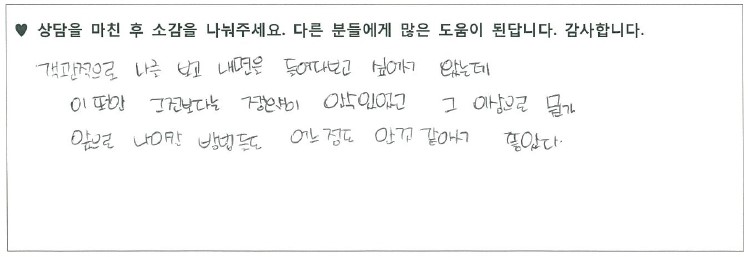 ♥ 상담을 마친 후 소감을 나눠주세요. 다른 분들에게 많은 도움이 된답니다. 감사합니다.
객관적으로 나를 보고 내면을 들여다보고 싶어서 왔는데
이 또한 그전보다는 정확히 그 이상으로 뭘가
앞으로 나아갈 방법들도 어느정도 안거 같아서 좋았다.